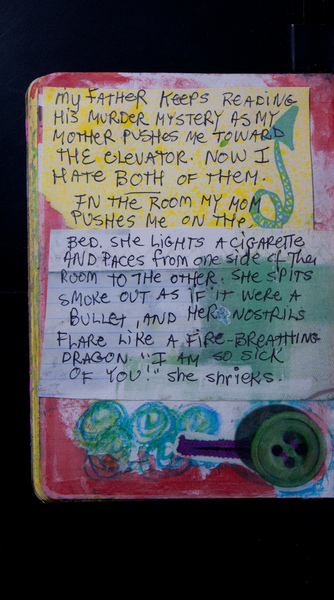 My FATHER KEEPS READING
HIS MURDER MYSTERY AS MY
MOTHER PUSHES ME TOWARD
THE ELEVATOR. NOW I
HATE BOTH OF THEM.
IN THE ROOM MY MOM
PUSHES ME ON THE
BED. SHE LIGHTS A CIGARETTE
AND PACES FROM ONE SIDE OF THE
ROOM TO THE OTHER. SHE SPITS
SMOKE OUT AS IF IT WERE A
BULLET, AND HER NOSTRILS
FLARE LIKE A FIRE-BREATHING
DRAGON. "I AM SO SICK
OF YOU!" She shrieks.